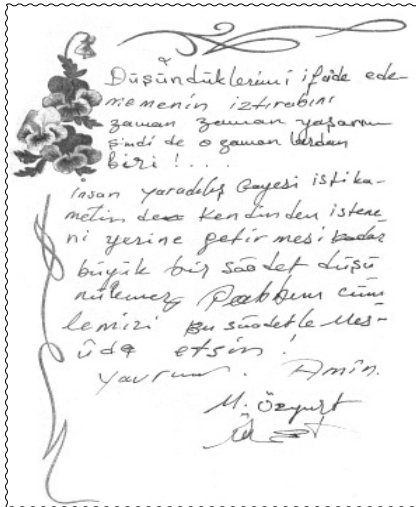 Düşündüklerimi ifade ede-
memenin ıztırabını
zaman zaman yaşarım
şimdi de o zamanlardan
biri!....
insan yaradılış Gayesi istika-
metinde kendinden istene-
ni yerine getirmesi kadar
büyük bir saadet düşü
nülemez Rabbim cüm
lemizi Bu saadetle Mes-
ûde etsin!
Yavrum. Amin.
M. Özyurt